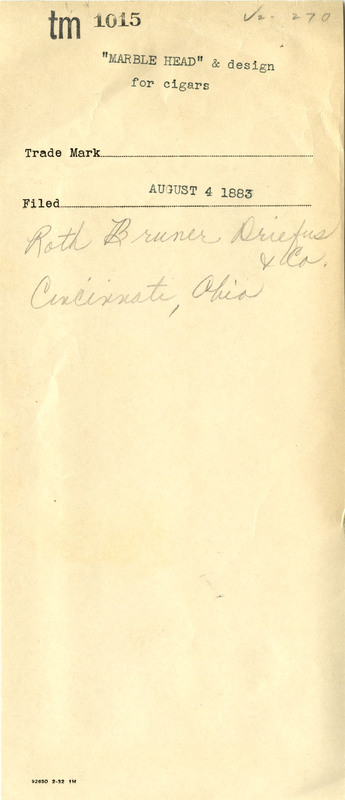 tm 1015
V2-270
"MARBLE HEAD" & design
for cigars
Trade Mark
AUGUST 4 1883
Filed
Roth Bruner Driefus
& Co.
Cincinnati, Ohio
92650 2-32 1M